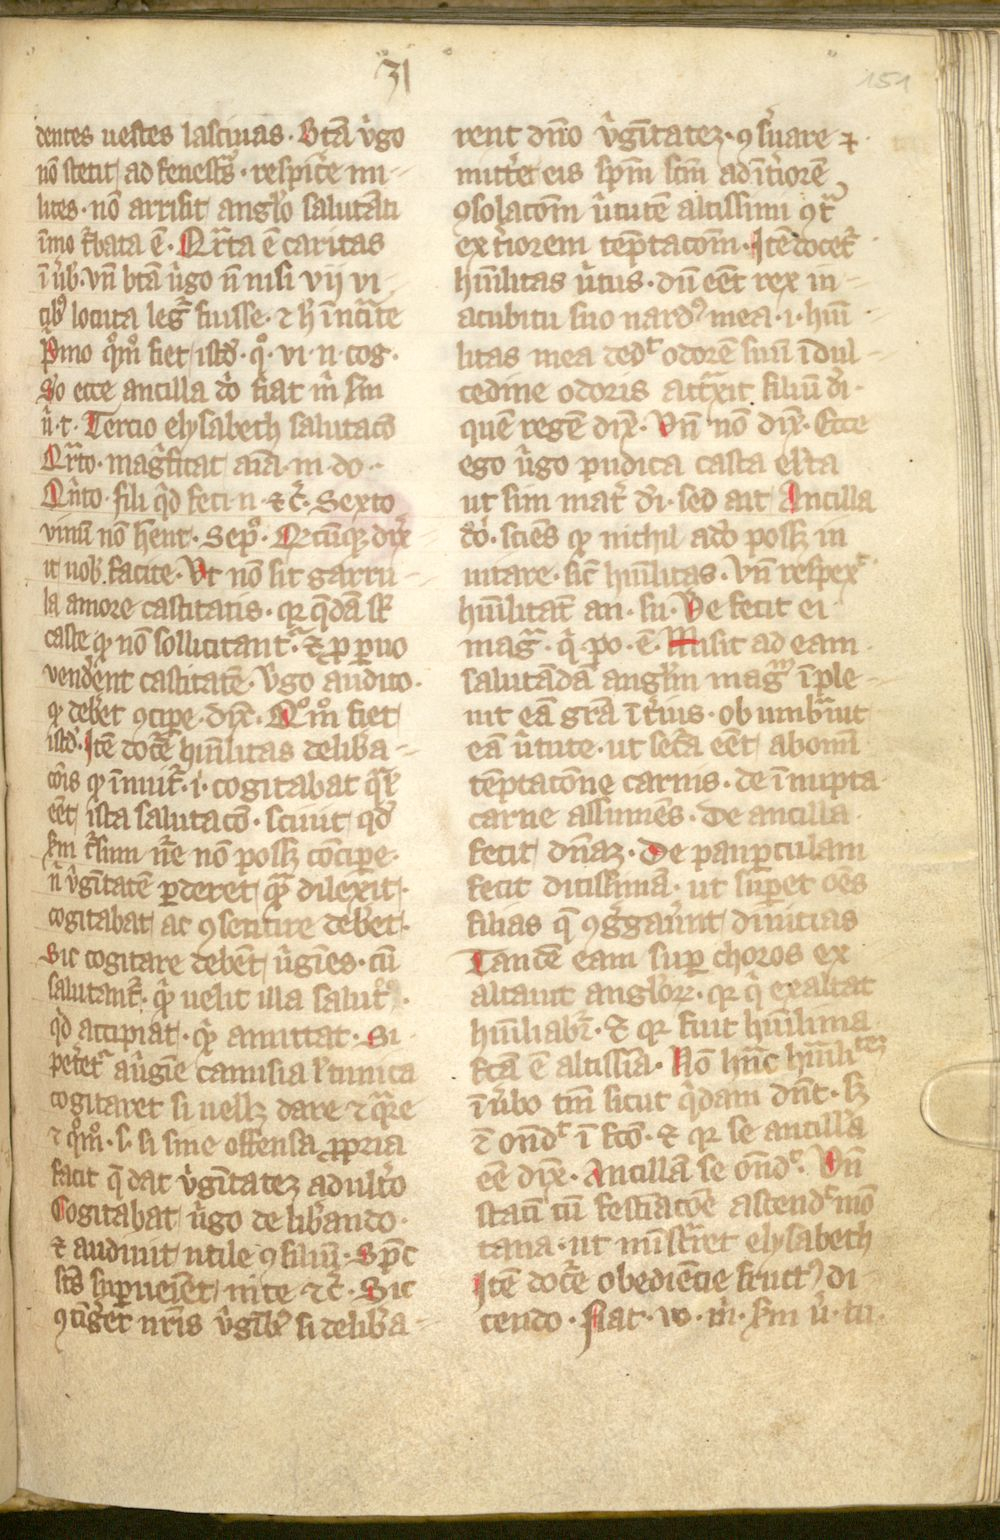 31
151
dentes uestes lasciuas. Btã v̾go
nõ stetit ad fenestrˢ. respice̾ mi-
lites. nõ arrisit anglo̾ salutãti
ĩmo t̾bata ẽ. Qr̃ta ẽ caritas
ĩ v̾b. vñ btã v̾go ñ nisi vij vi
cibꝰ locuta leg̃ fuisse. ⁊ h̾ ĩ
P̾mo qͦm̊ fiet istđ. qͦ. vi. n. cog.
Sͦo ecce ancilla do̾ fiat m̾ sm̃
ũ. t. Tercio elysabeth salutacõ
Qr̃to. mag̾ficat aĩa. m. do.
Qñto. fili qͥd feci n. ⁊ c̾. Sexto
vinũ nõ hñt. Sepͦ. Qcũqꝫ dix̾
it uob. facite. Vt nõ sit garru-
la amore castitatis. qꝛ q̃dã st̾
caste qͥ nõ sollicitant̾. ⁊ p̱ p̱uo
vende̾nt castitatẽ. V̾go audito.
ꝙ debet̾ ꝯcipe̾. dix̾. Qͦm̊ fiet
istđ. Itẽ doce̾ humĩlitas delib̾a-
cõis ꝙ ĩnuit̾. i. cogitabat ql̾
eẽt ista salutacõ. sciuit qđ
sm̃ t̾sum nr̃e nõ possꝫ cõcipe̾.
ñ v̾gĩtatẽ p̱deret quã dilexit.
cogitabat ac ꝯsentire debet̾.
Sic cogitare debẽt v̾gĩes. cũ
salutant̾. qͥ uelit illa salut̾.
qͥd accipiat. qͥd amittat. Si
petet̾ a v̾gĩe camisia ł tunica
cogitaret si uellꝫ dare ⁊ qͣre
⁊ qͦm̊. s. si sine offensa ꝓpria
facit q̃ dat v̾gĩtatez adulto̾
Cogitabat v̾go deliberando.
⁊ audiuit utile ꝯsiliũ. Spc̃
scˢ suꝑueiẽt in te ⁊ c̾. Sic
ꝯtĩge̾t nr̃is v̾gĩibꝰ si delib̾a-
rent dño v̾gĩtatez. ꝯs̾uare ⁊
mitte̾t eis spm̃ scm̃ ad ĩt̾iorẽ
ꝯsolacõm v̾tutẽ altissimi ꝯt̾
ext̾iorem tẽptacõm. Itẽ docet̾
humĩlitas v̾tus. dũ eẽt rex in
acubitu suo nardꝰ mea. i. humĩ
litas mea dedᵗ odorẽ suũ ĩ dul-
cedine odoris att̾xit filiũ di̾.
quẽ regẽ dix̾. Vñ nõ dix̾. Ecce
ego v̾go pudica casta elc̃ta
ut sim mat̾ di̾. sed ait Ancilla
do̾. sciẽs ꝙ nichil adͦ possꝫ in
uitare. sic̾ humĩlitas. Vñ respexᵗ
humĩlitat̃ an. su. De fecit ei
mag̾. qͥ. po. ẽ. Misit ad eam
salutãdã anglm̃ mag̾ ĩple-
uit eã gr̃a ĩt̾ius. obumb̾uit
eã v̾tute. ut sec̾a eẽt ab om̃i
tẽptacõne carnis. de ĩnupta
carne assumẽs. De ancilla
fecit dñaz. De pauꝑculam
fecit ditissimã. ut suꝑet oẽs
filias q̃ ꝯg̾gaue̾nt diuitias
Tandẽ eam suꝑ choros ex
altauit angloꝝ. qꝛ qͥ exaltat
humĩliabr̾. ⁊ qꝛ fuit humĩlima
fc̃a ẽ altissĩa. Nõ hũc humĩlitez
ĩ v̾bo tm̃ sicut qͥdam dñt. sꝫ
⁊ onđᵗ ĩ fc̃o. ⁊ qꝛ se ancillã
eẽ dix̾. Ancillã se onđᵗ. Vñ
statĩ cũ festĩacõe ascendᵗ mõ
tana. ut mĩstret̾ elysabeth
Itẽ doce̾ obediẽcie fructꝰ di-
cendo. Fiat. vo. m̾. sm̃ ũ. tu.